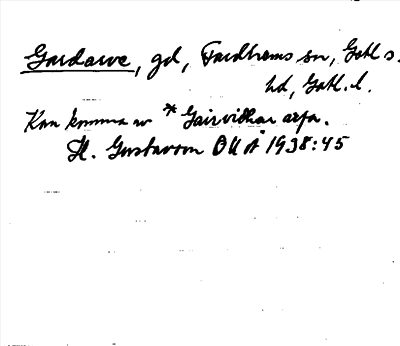 Gardarve, gd, Fardhems sn, Gotl s.
hd, Gotl. l.
Kan komma av * Gairvidhar arfa.
H. Gustavson OUÅ 1938:45